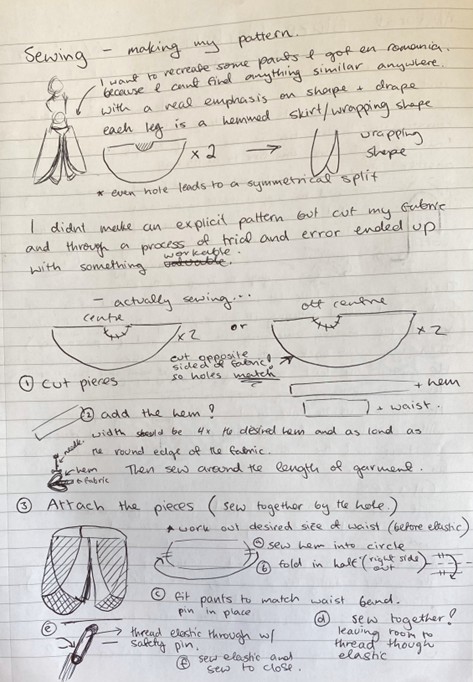 Sewing – making my pattern.
I want to recreate some pants I got en romania.
because I cant find anything similar anywhere.
with a real emphasis on shape + drape
each leg is a hemmed skirt/wrapping shape
x 2
wrapping
shape
* even hole leads to a symmetrical split
I didnt make an explicit pattern but cut my fabric
and through a process of trial and error ended up
with something workable.
– actually sewing...
centre
x 2
or
off centre
x 2
cut opposite
sides of fabric!
so holes match
① cut pieces
+ hem
+ waist.
② add the hem!
width should be 4x the desired hem and as long as
the round edge of the fabric.
needle
hem
fabric
Then sew around the length of garment.
③ Attach the pieces (sew together by the hole.)
* work out desired size of waist (before elastic)
ⓐ sew hem into circle
ⓑ fold in half (right side
out)
ⓒ fit pants to match waist band.
pin in place
ⓓ sew together!
leaving room to
thread though
elastic
ⓔ
thread elastic through w/
safety pin.
ⓕ sew elastic and
sew to close.